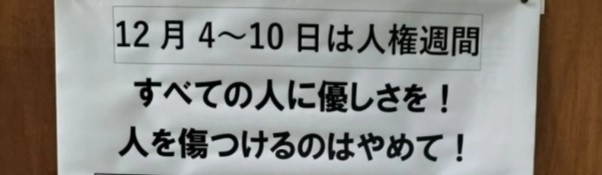 12月4～10日は人権週間
すべての人に優しさを！
人を傷つけるのはやめて！